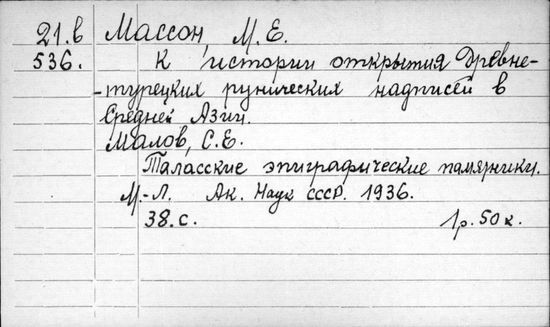 21.в Массон, М.Е.
536. К истории открытия Древне-
-турецких рунических надписей в
Средней Азии.
Малов, С.Е.
Таласские эпиграфические памятники.
М.-Л. Ак. Наук СССР. 1936.
38.с. 1р.50к.